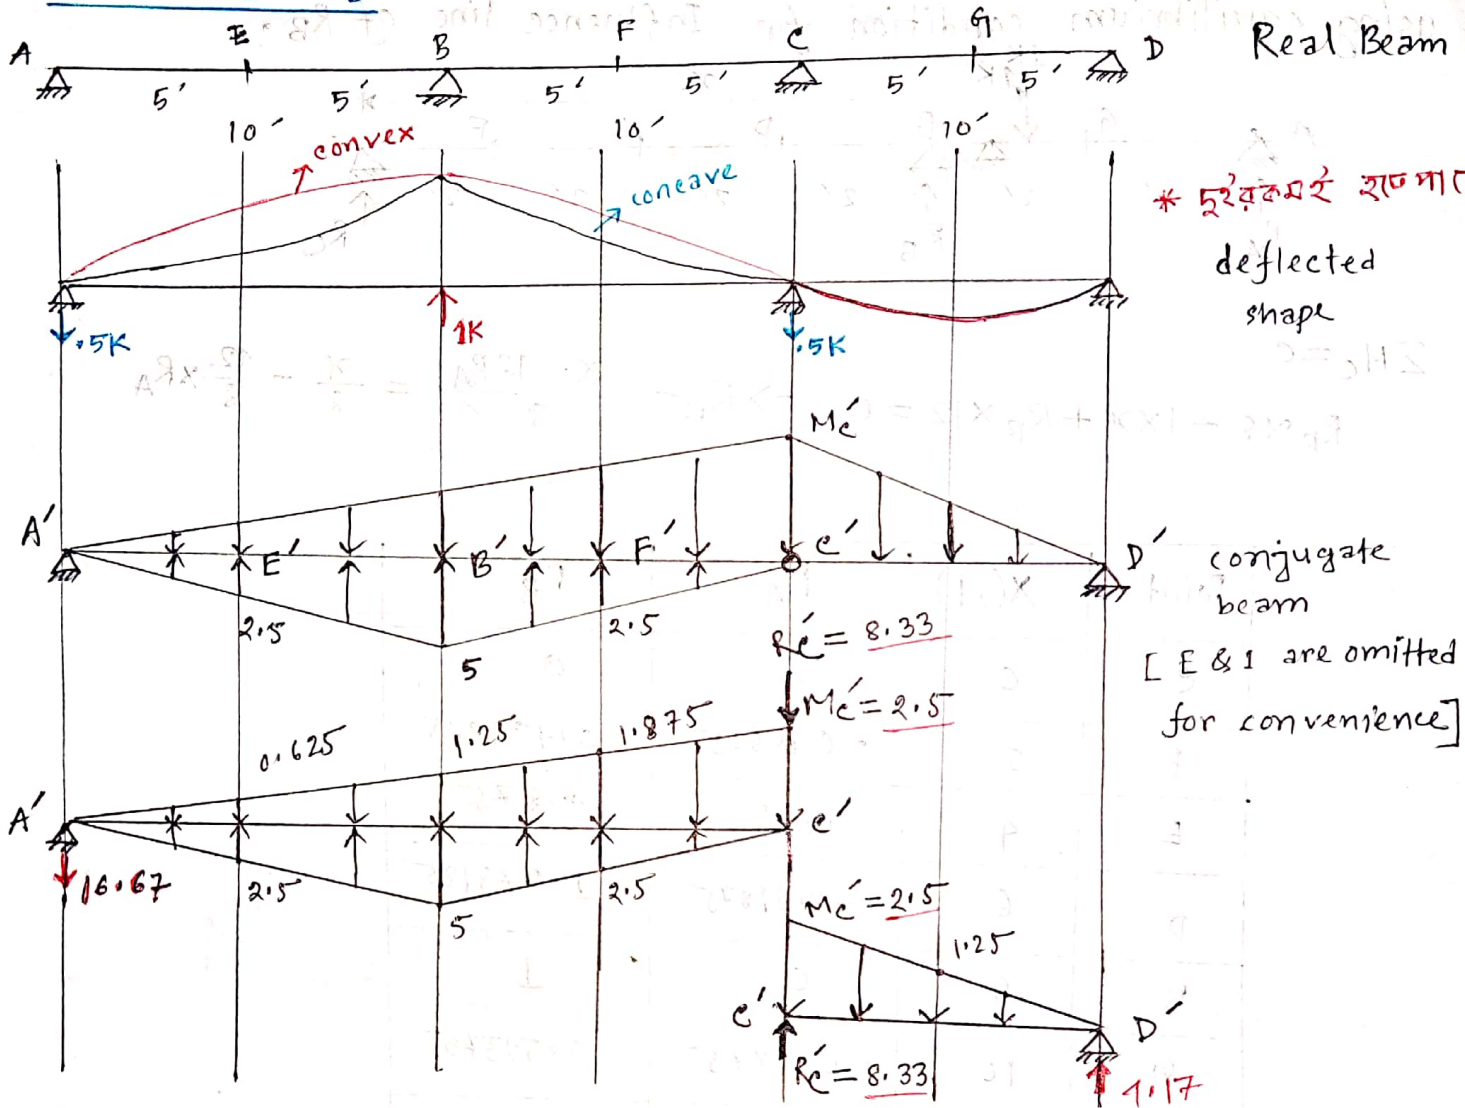 A E B F C G D Real Beam
5' 5' 5' 5' 5' 5'
10' 10' 10'
convex
concave
* দুইরকমই হতে
deflected
shape
.5K 1K .5K
Mc'
A' E' B' F' C' D' conjugate
beam
2.5 5 2.5
Rc' = 8.33
[ E & I are omitted
for convenience]
Mc' = 2.5
0.625 1.25 1.875
A' C'
16.67 2.5 5 2.5
Mc' = 2.5
1.25
C' D'
Rc' = 8.33
4.17